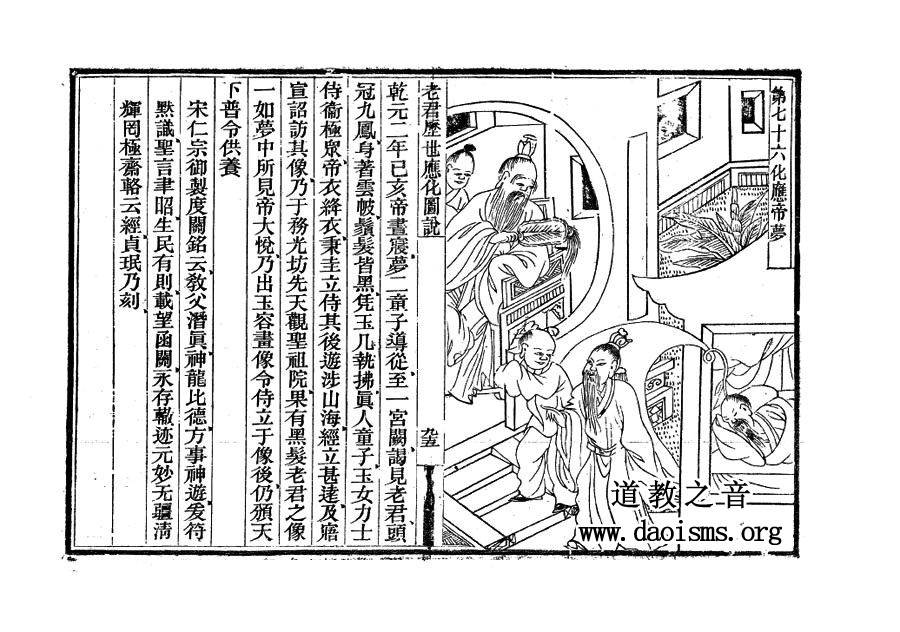 第七十六化應帝夢
老君歷世應化圖說
九五
乾元二年己亥帝晝寢夢二童子導從至一宮闕謁見老君頭
冠九鳳身著雲帔鬚髮皆黑凭玉几執拂眞人童子玉女力士
侍衞極眾帝衣絳衣秉圭立侍其後遊涉山海經立甚逺及寤
宣詔訪其像乃于務光坊先天觀聖祖院果有黑髮老君之像
一如夢中所見帝大悅乃出玉容畫像令侍立于像後仍頒天
下普令供養
宋仁宗御製度關銘云敎父潛眞神龍比德方事神遊爰符
默識聖言聿昭生民有則載望函關永存轍迹元妙无疆清
輝罔極齋輅云經貞珉乃刻
道教之音
www.daoisms.org